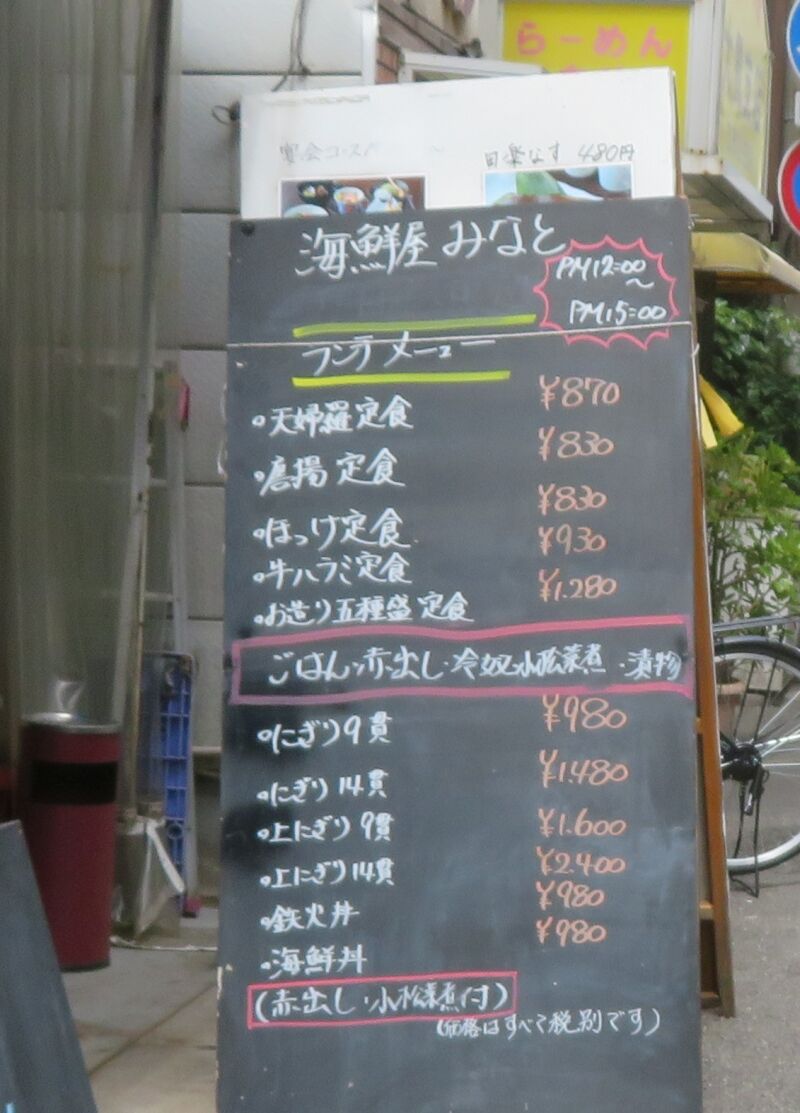 らーめん
宴会コース
目楽なす 480円
海鮮屋 みなと
PM12:00
～
PM15:00
ランチメニュー
天婦羅定食 ¥870
唐揚定食 ¥830
ほっけ定食 ¥830
牛ハラミ定食 ¥930
お造り五種盛定食 ¥1.280
ごはん・赤出し・冷奴・小松菜煮・漬物
にぎり9貫 ¥980
にぎり14貫 ¥1.480
上にぎり9貫 ¥1.600
上にぎり14貫 ¥2.400
鉄火丼 ¥980
海鮮丼 ¥980
(赤出し・小松菜煮付)
(価格はすべて税別です)